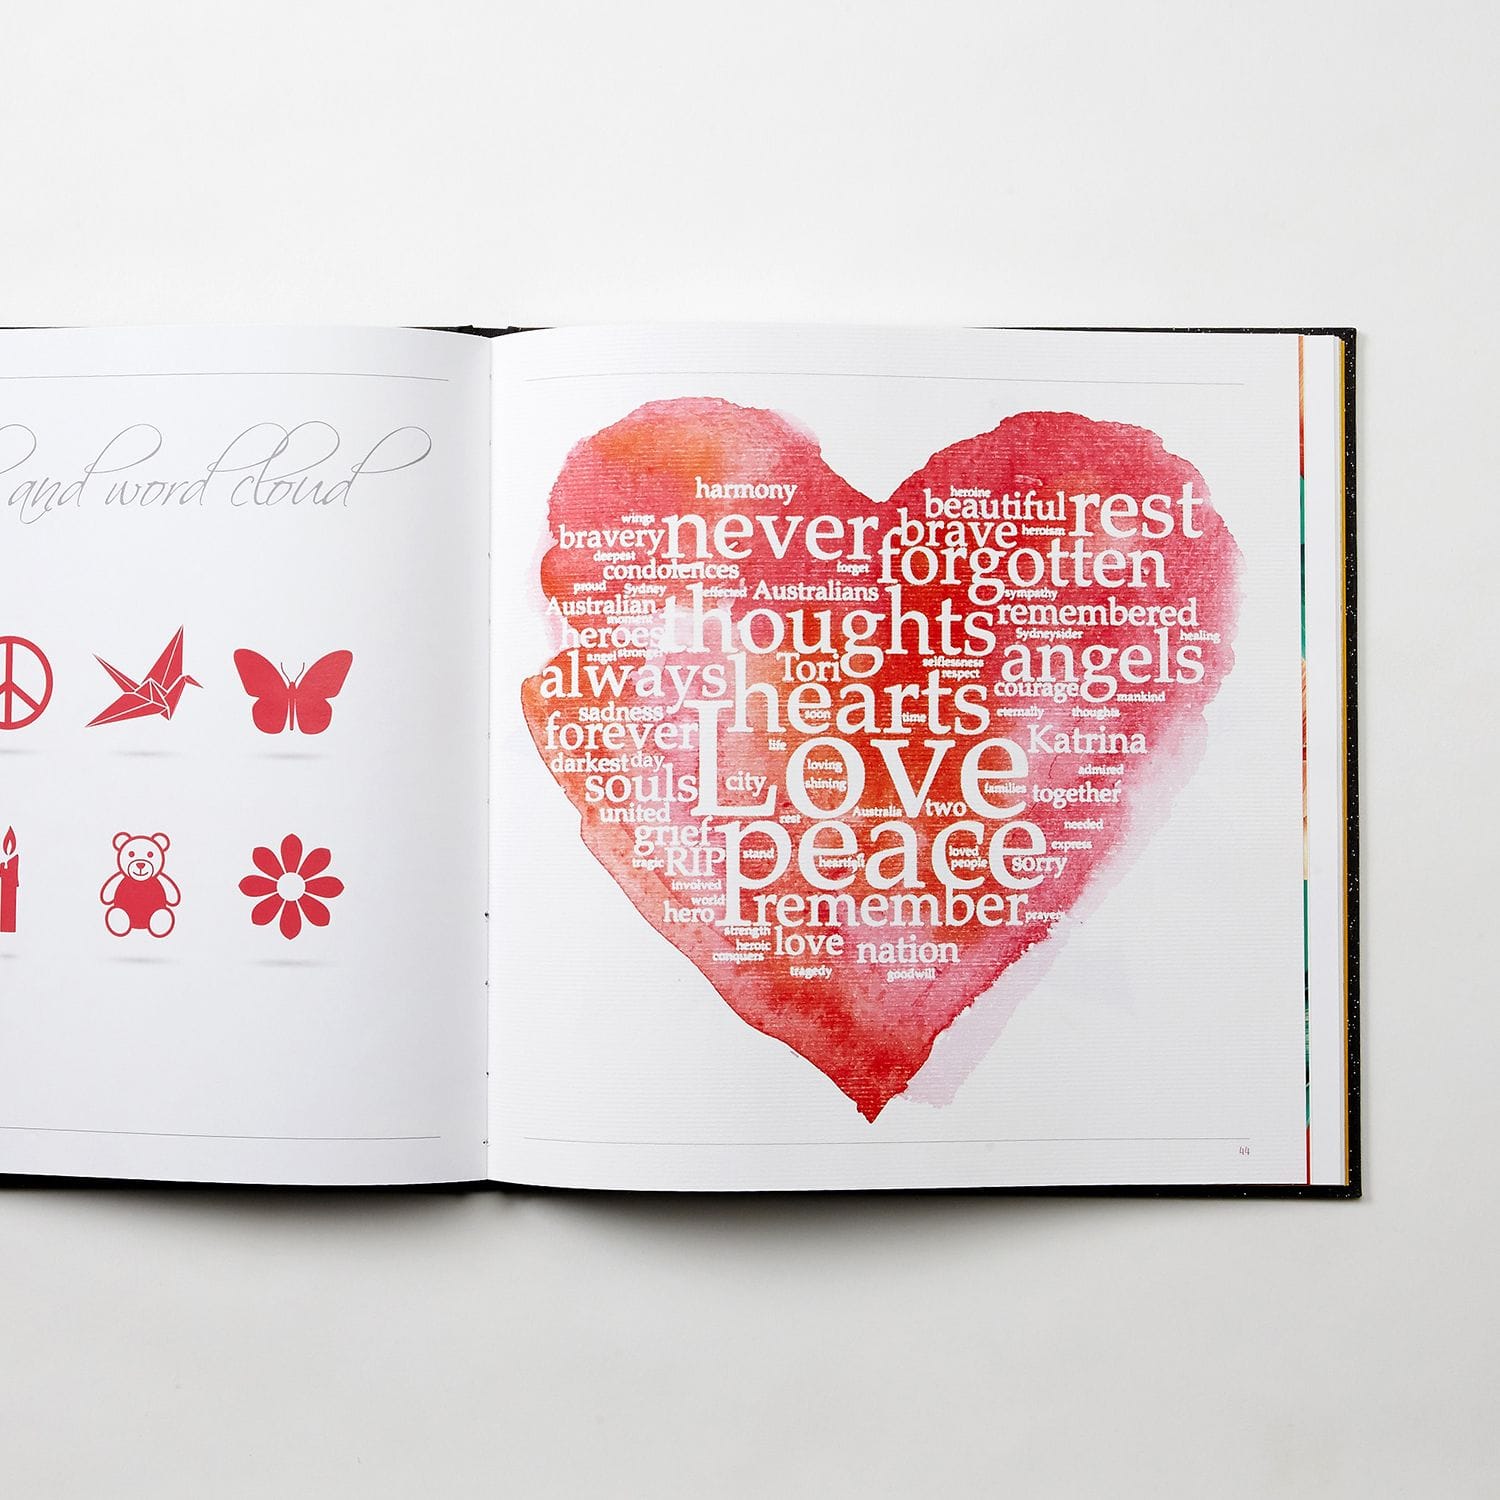 and word cloud
harmony
heroine
beautiful
rest
wings
never
brave
heroism
bravery
forgotten
deepest
condolences
forget
proud
Sydney
effected
Australians
sympathy
Australian
moment
thoughts
remembered
heroes
Sydneysider
healing
angel
stronger
Tori
selflessness
respect
angels
always
hearts
courage
mankind
sadness
soon
time
eternally
thoughts
forever
life
Love
Katrina
darkest
day
loving
admired
souls
city
shining
families
together
united
rest
Australia
two
grief
peace
needed
tragic
RIP
stand
heartfelt
loved
people
sorry
express
involved
world
hero
remember
prayers
strength
heroic
love
nation
conquers
tragedy
goodwill
44